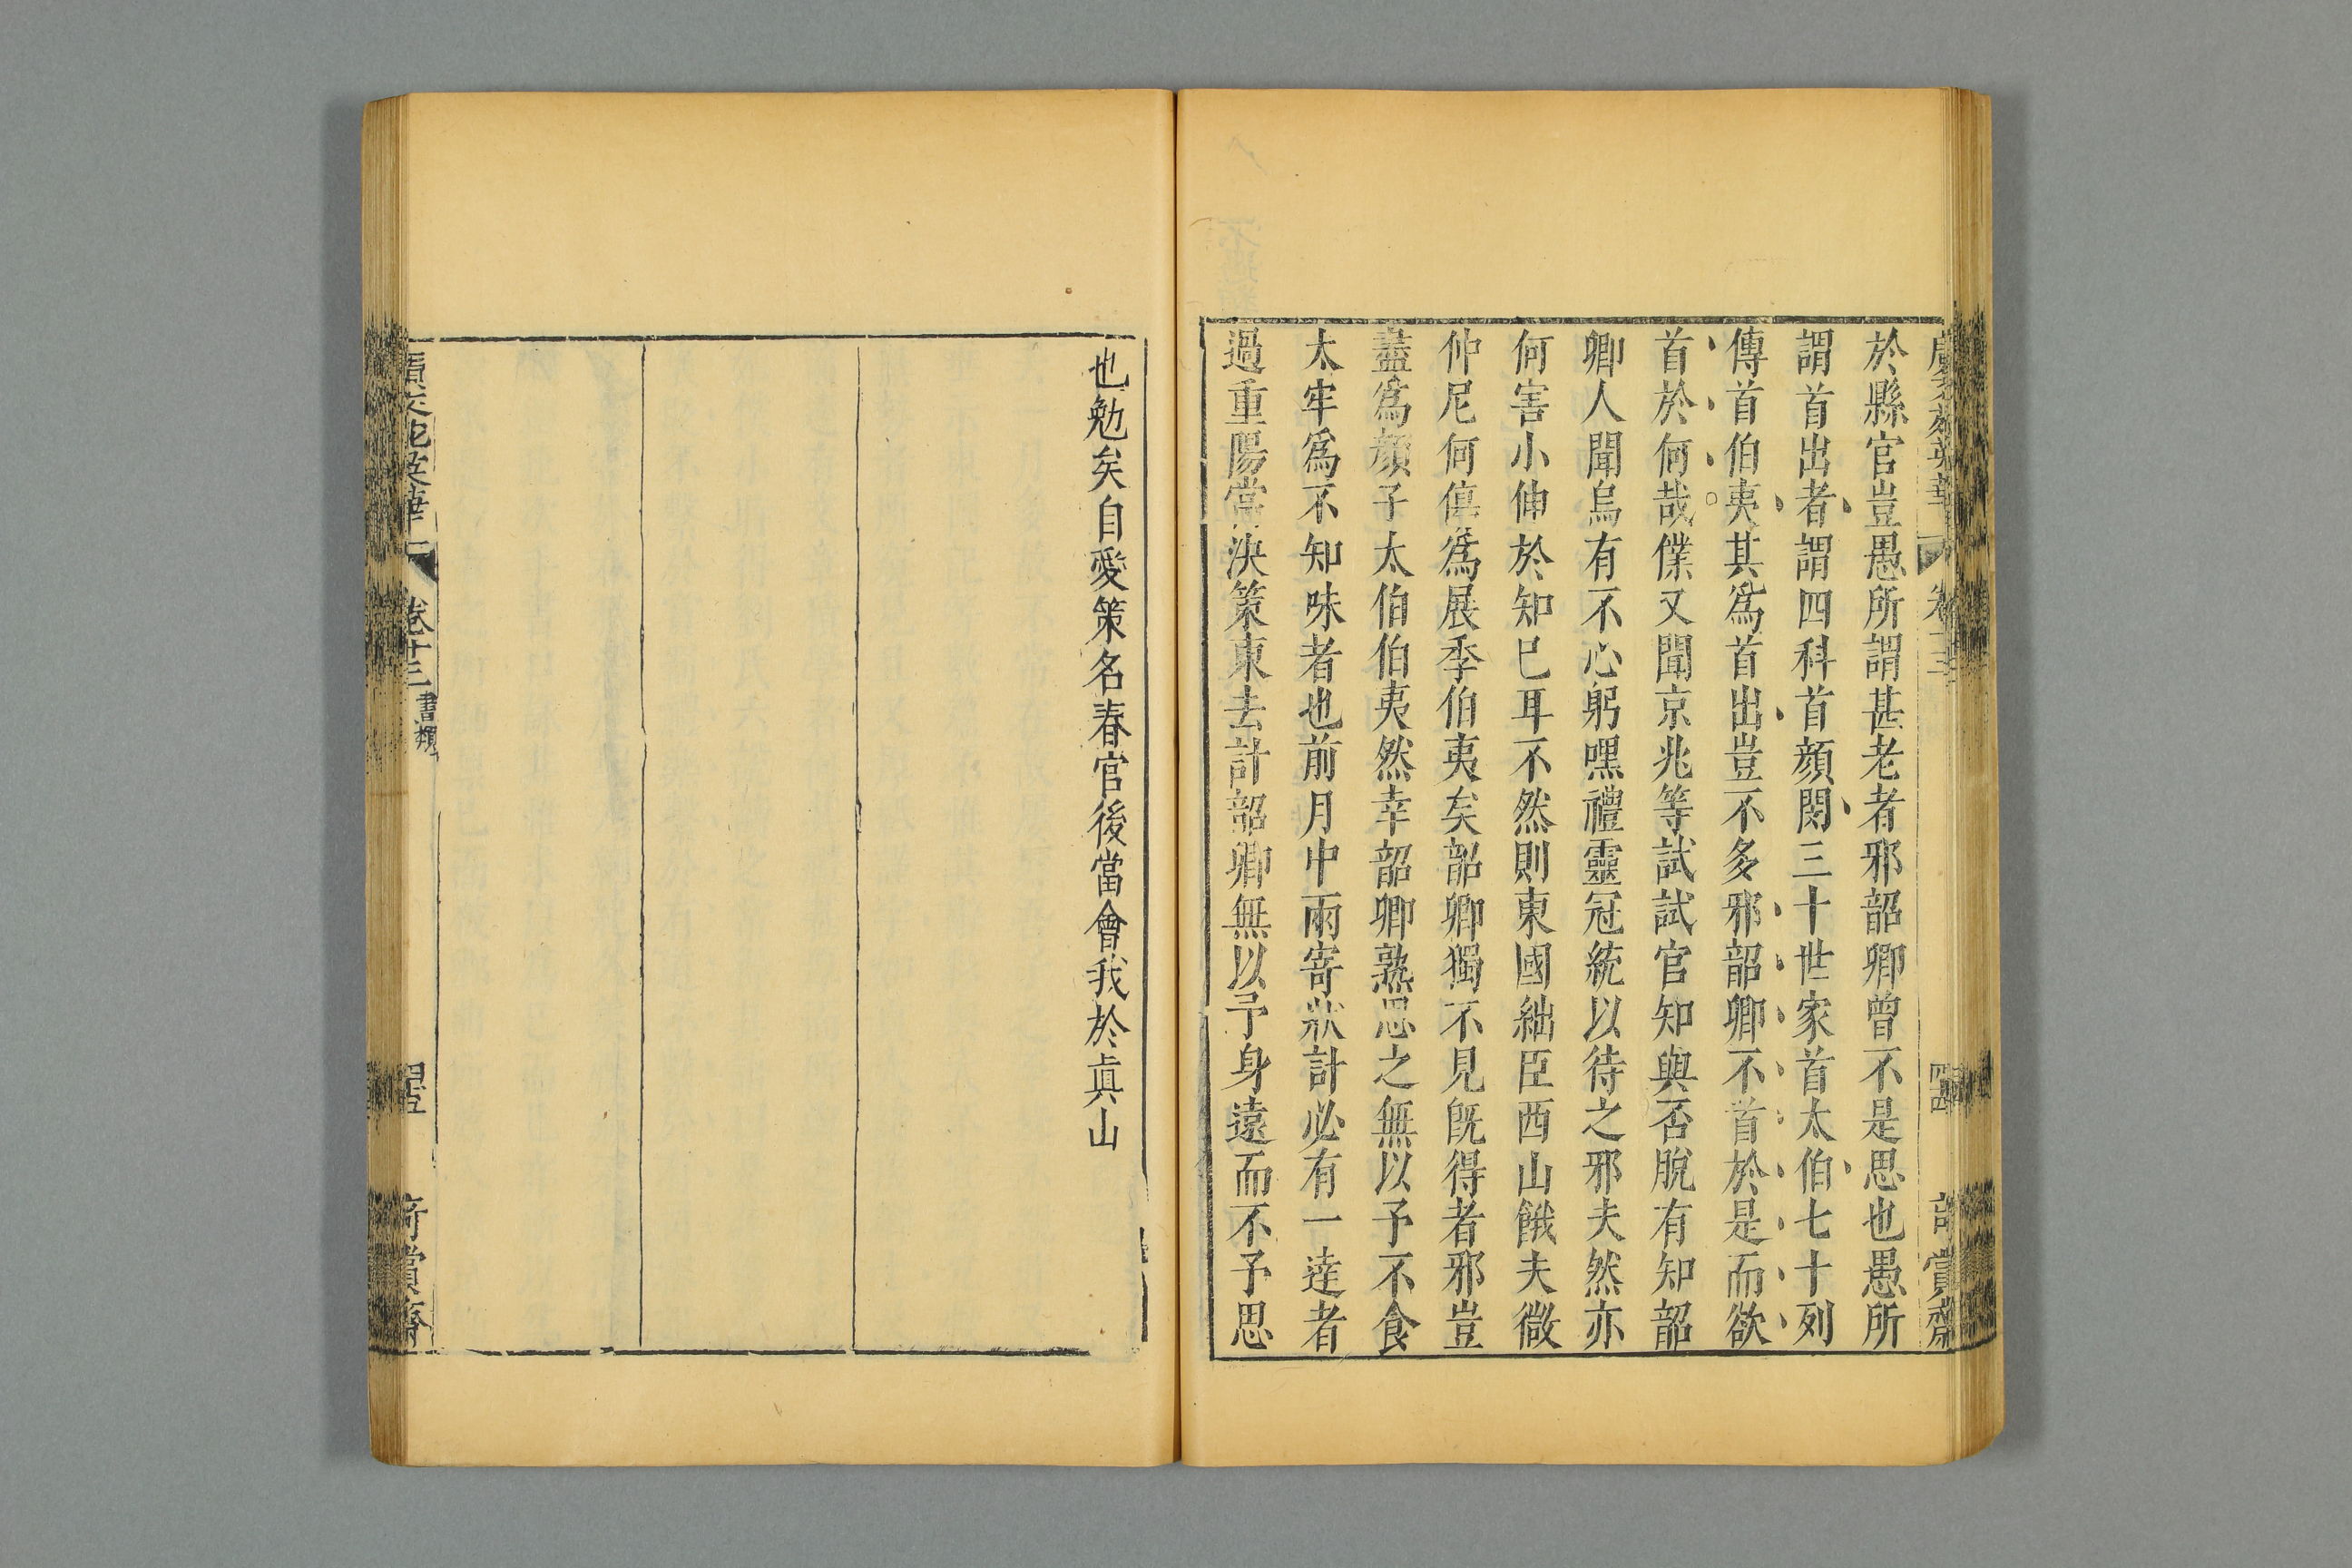 於縣官豈愚所謂甚老者邪韶卿曾不是思也愚所
謂首出者謂四科首顔閔三十世家首太伯七十列
傳首伯夷其爲首出豈不多邪韶卿不首於是而欲
首於何哉僕又聞京兆等試試官知與否脫有知韶
卿人聞烏有不心躬嘿禮靈冠統以待之邪夫然亦
何害小伸於知巳耳不然則東國絀臣西山餓夫微
仲尼何傎爲展季伯夷矣韶卿獨不見旣得者邪豈
盡爲顔子太伯伯夷然幸韶卿熟思之無以予不食
太牢爲不知味者也前月中兩寄狀計必有一達者
過重陽當決策東去計韶卿無以予身遠而不予思
也勉矣自愛策名春官後當會我於眞山
廣文苑英華 卷十三 書類 奇賞齋